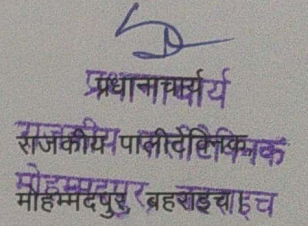 प्रधानाचार्य
राजकीय पालीटेक्निक
मोहम्मदपुर बहराइच